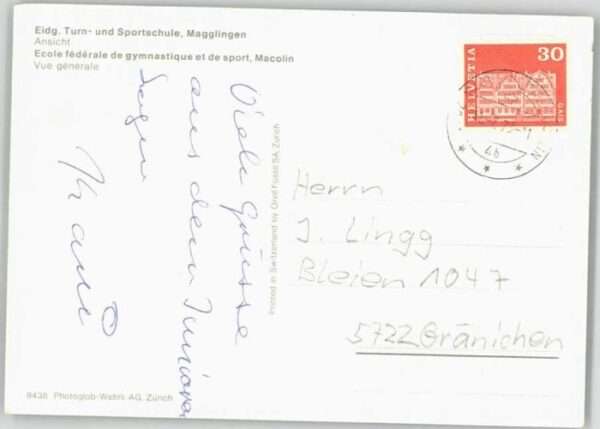 Eidg. Turn- und Sportschule, Magglingen
Ansicht
Ecole fédérale de gymnastique et de sport, Macolin
Vue générale
Viele Grüsse
aus dem
Printed in Switzerland by Orell Füssli SA, Zürich
HELVETIA
30
Herrn
J. Lingg
Bleien 1047
5722 Gränichen
9438 Photoglob-Wehrli AG, Zürich